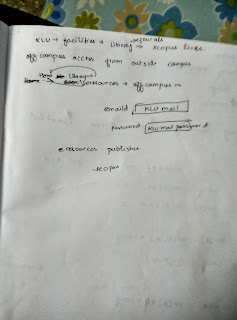 journals
KLU → facilities → library → scopus links.
off campus access from outside campus
Home → library →
eresources → off campus →
emailid KLU mail
password KLU mail password
eresources publisher
scopus